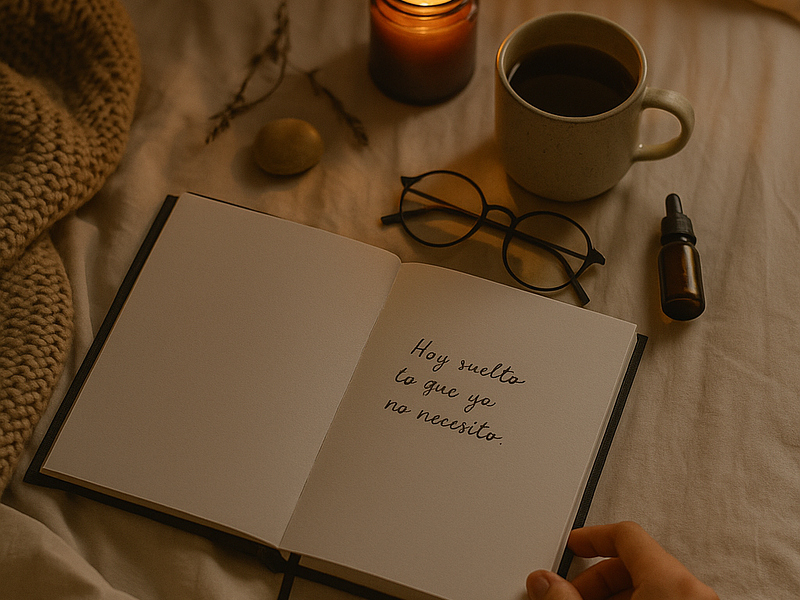 Hoy suelto
to que ya
no necesito.